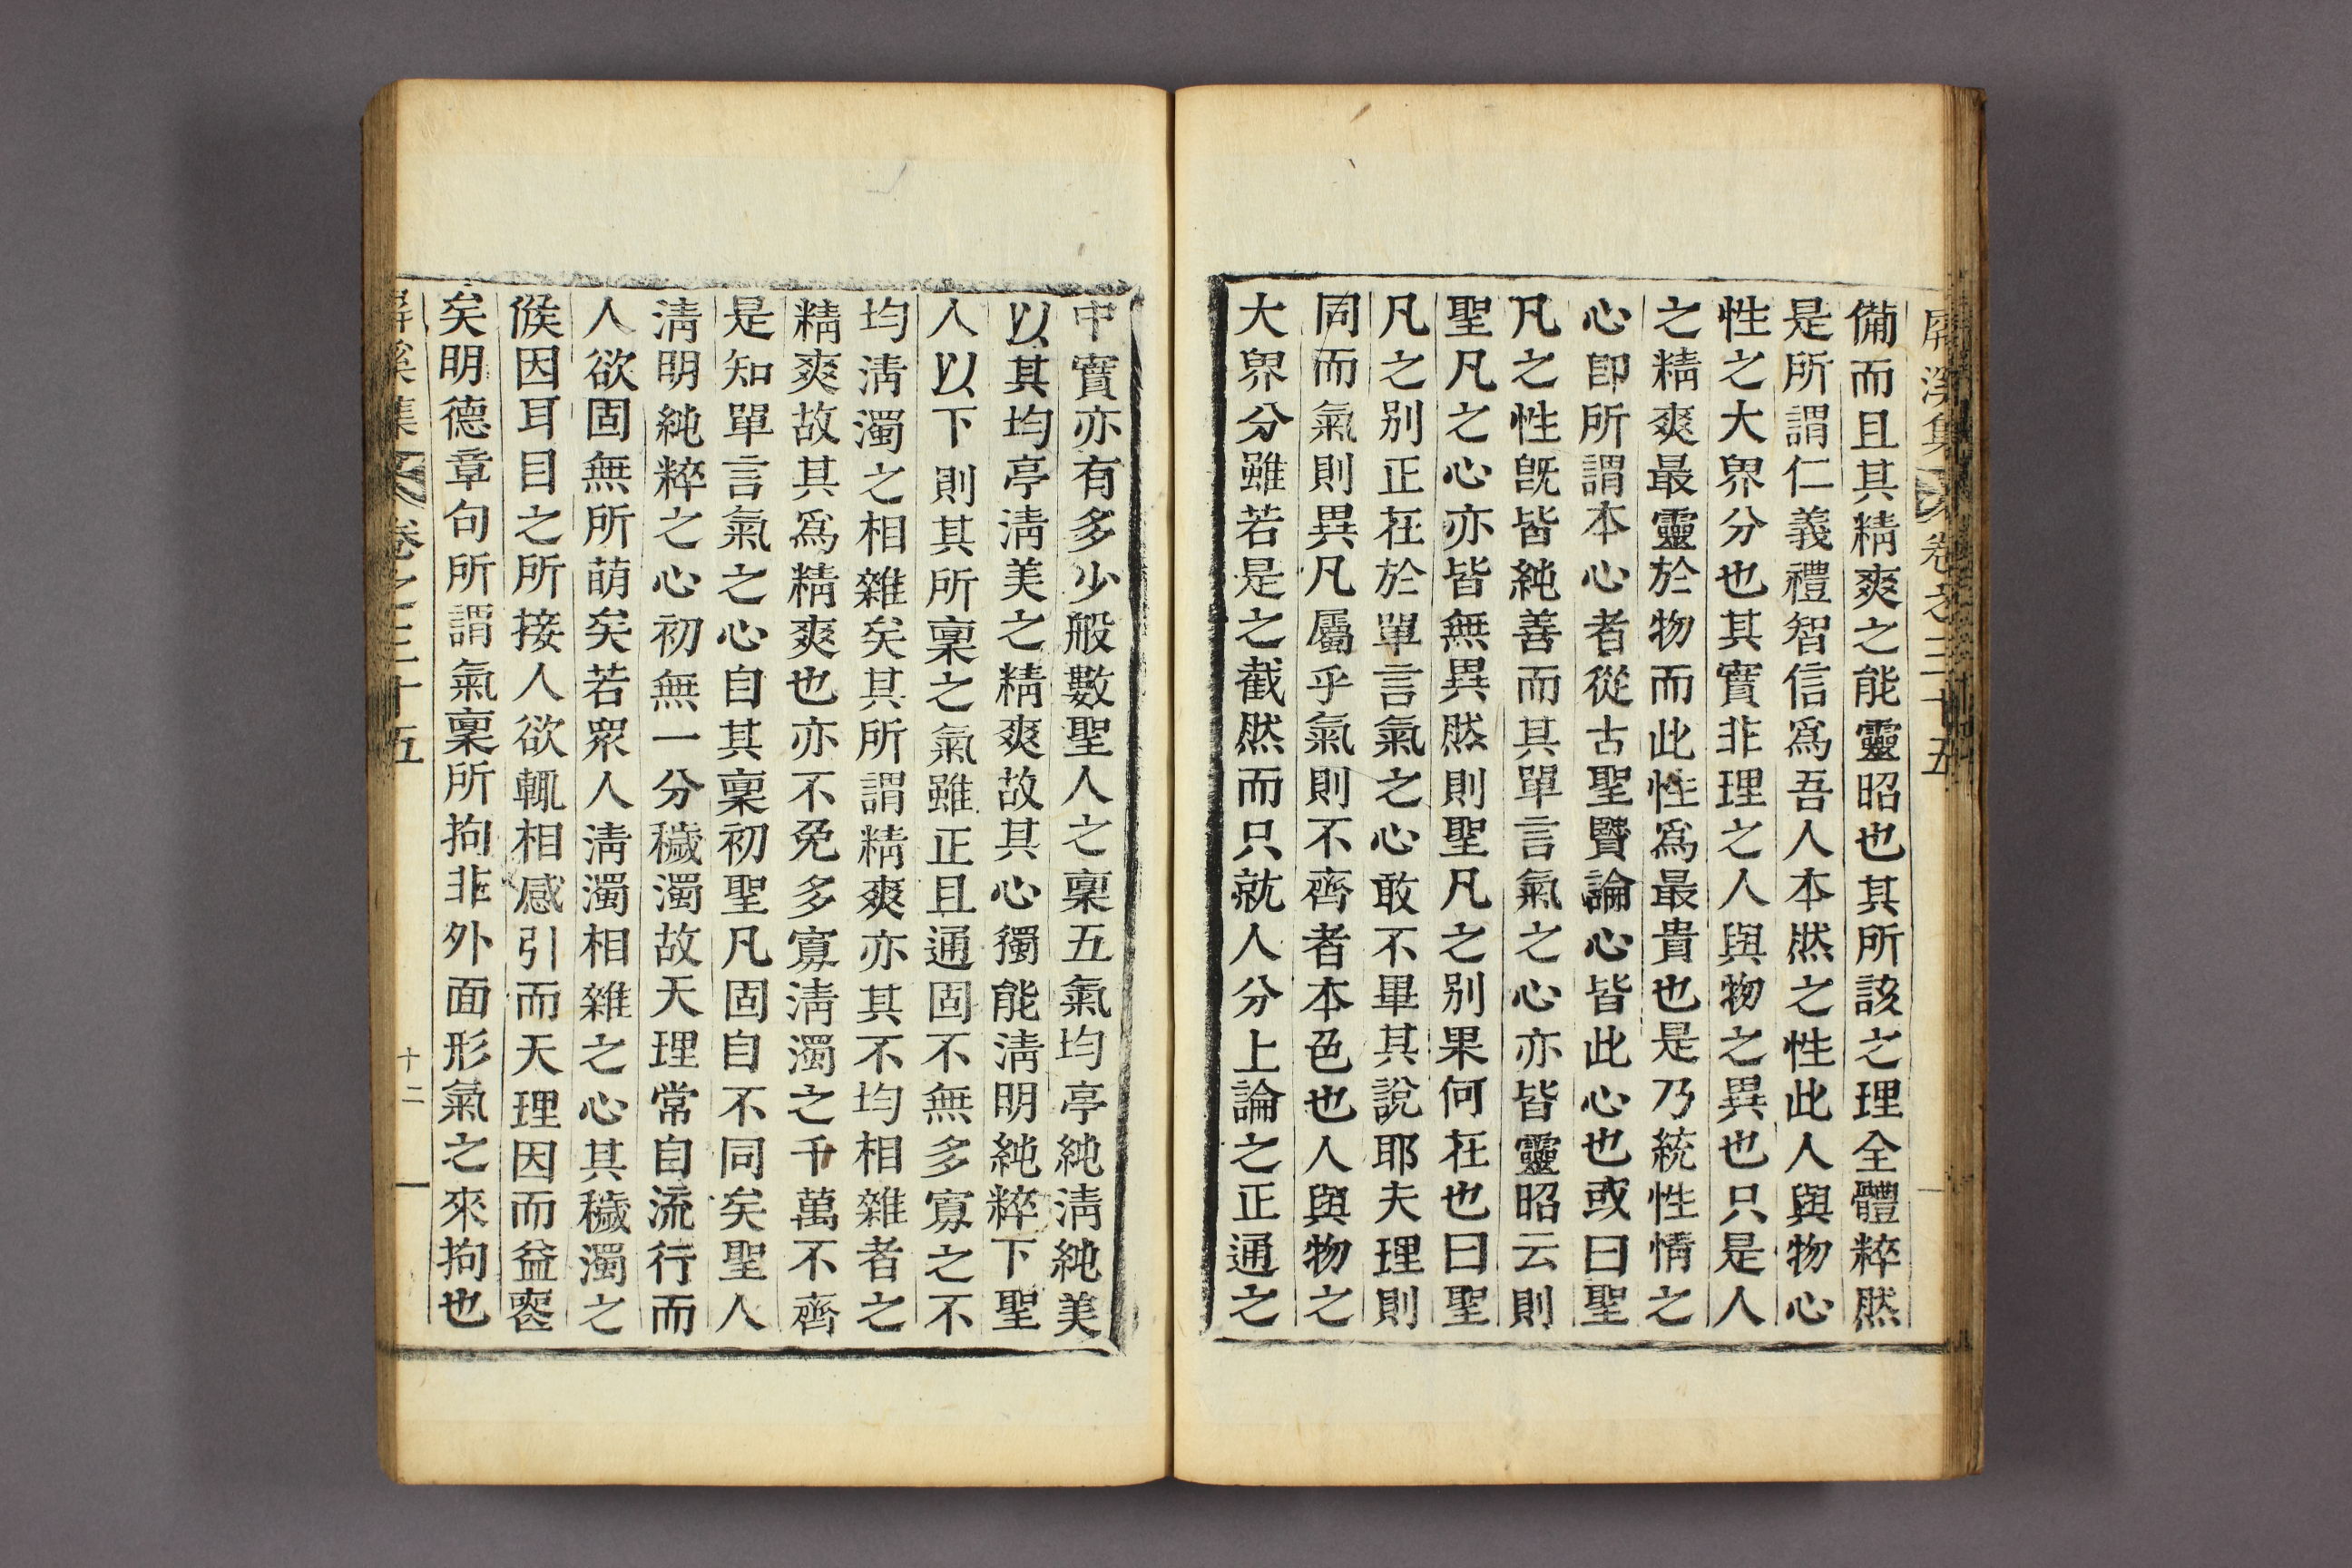 屛溪集 卷之三十五
備而且其精爽之能靈昭也其所該之理全體粹然
是所謂仁義禮智信爲吾人本然之性此人與物心
性之大界分也其實非理之人與物之異也只是人
之精爽最靈於物而此性爲最貴也是乃統性情之
心卽所謂本心者從古聖賢論心皆此心也或曰聖
凡之性旣皆純善而其單言氣之心亦皆靈昭云則
聖凡之心亦皆無異然則聖凡之别果何在也曰聖
凡之别正在於單言氣之心敢不畢其說耶夫理則
同而氣則異凡屬乎氣則不齊者本色也人與物之
大界分雖若是之截然而只就人分上論之正通之
中實亦有多少般數聖人之稟五氣均亭純淸純美
以其均亭淸美之精爽故其心獨能淸明純粹下聖
人以下則其所稟之氣雖正且通固不無多寡之不
均淸濁之相雜矣其所謂精爽亦其不均相雜者之
精爽故其爲精爽也亦不免多寡淸濁之千萬不齊
是知單言氣之心自其稟初聖凡固自不同矣聖人
淸明純粹之心初無一分穢濁故天理常自流行而
人欲固無所萌矣若衆人淸濁相雜之心其穢濁之
候因耳目之所接人欲輒相感引而天理因而益窒
矣明德章句所謂氣稟所拘非外面形氣之來拘也
屛溪集 卷之三十五 十二